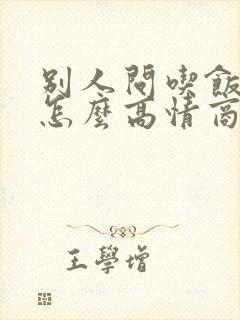 別人問喫飯
怎麼高情商
王學增